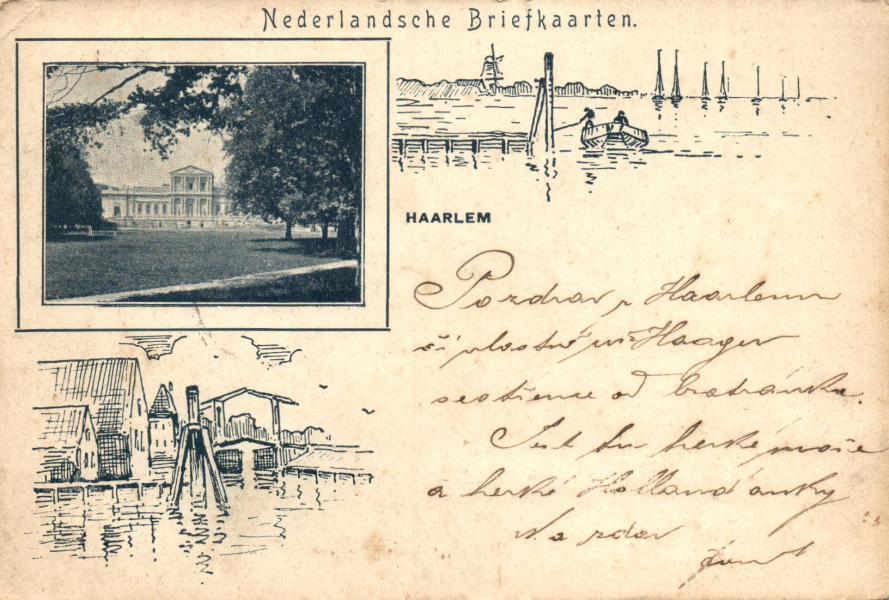 Nederlandsche Briefkaarten.
HAARLEM
Pozdrav z Haarlemu
či vlastně z Haagu
sestřence od bratránka.
Jest tu hezké moře
a hezké Hollanďanky
Na zdar